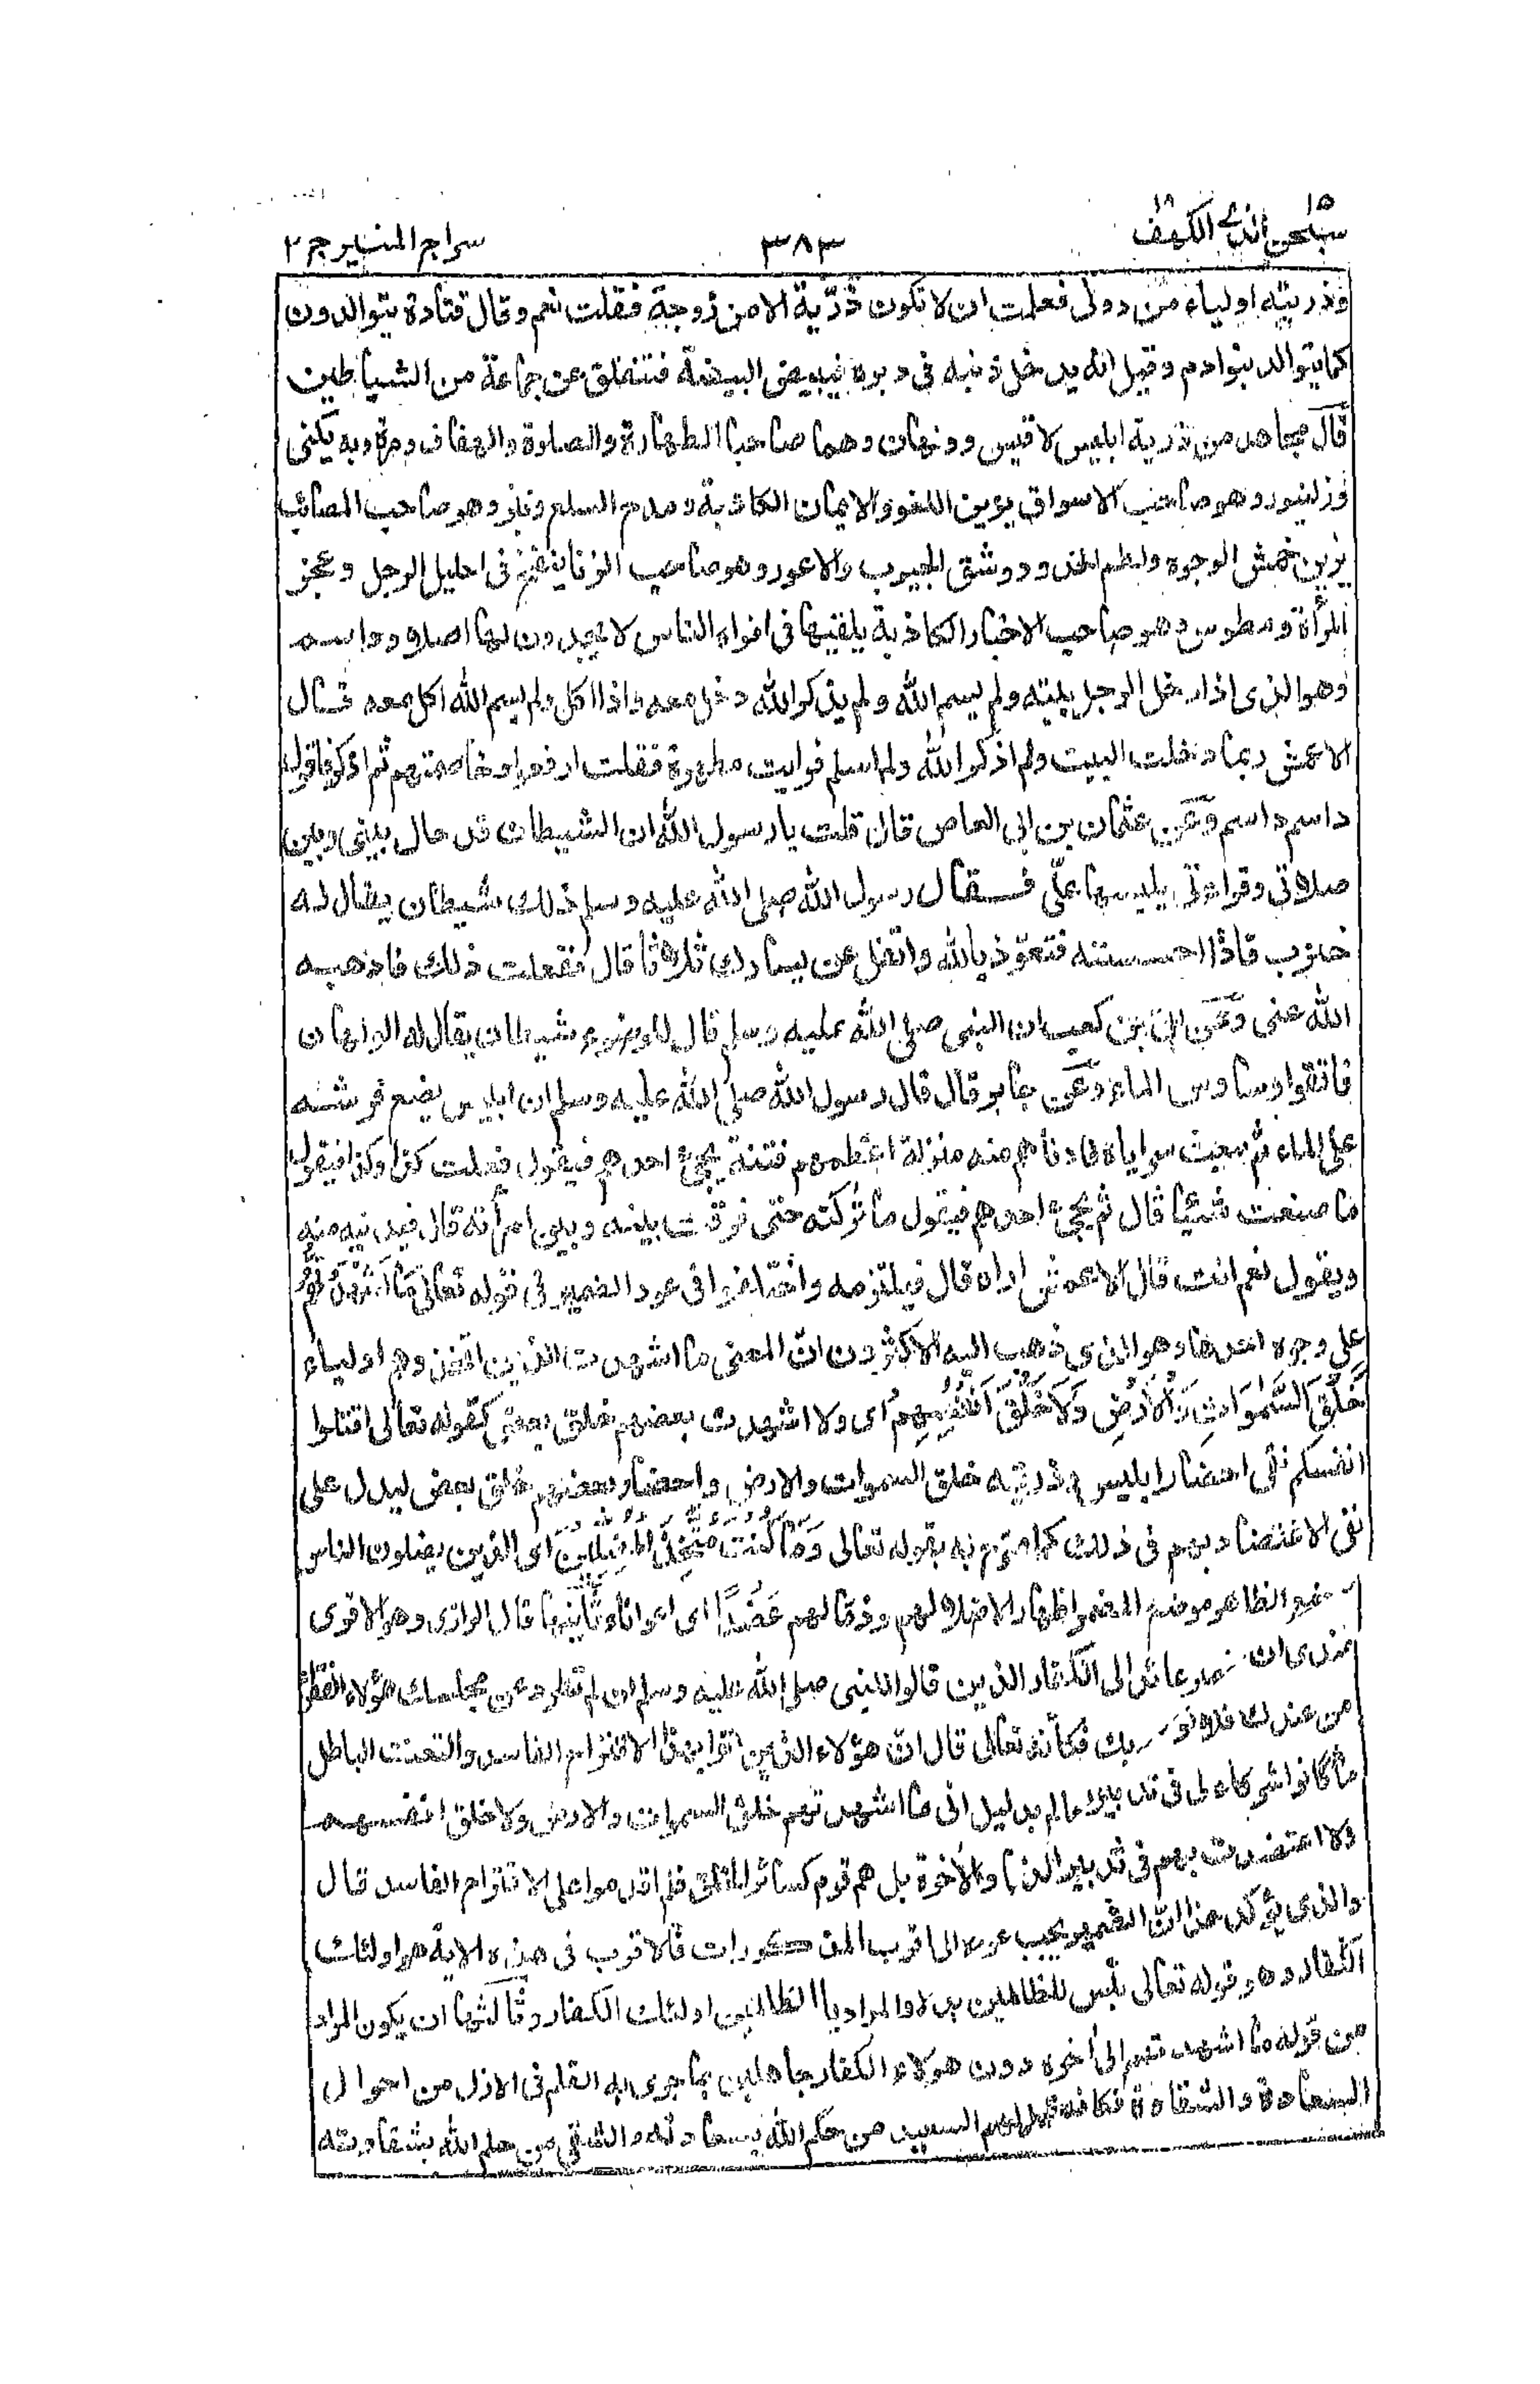 ١٥ ١٨
سبحن الذى الكهف
٣٨٣
سراج المنير ج ٢
وذريته اولياء من دونى فعلمت ان لا تكون ذرّية الا من زوجة فقلت نعم وقال قتادة يتوالدون
كما يتوالد بنوادم وقيل انه يدخل ذنبه فى دبره فيبيض البيضة فتنفلق عن جماعة من الشياطين
قال مجاهد من ذرية ابليس لاقيس وولهان وهما صاحبا الطهارة والصلوة والهفاف ومرة وبه يكنى
وزلنبور وهو صاحب الاسواق يزين اللغو والايمان الكاذبة ومدح السلع وثبر وهو صاحب المصائب
يزين خمش الوجوه ولطم الخدود وشق الجيوب والاعور وهو صاحب الزنا ينفخ فى احليل الرجل وعجز
المرأة ومطوس وهو صاحب الاخبار الكاذبة يلقيها فى افواه الناس لا يجدون لها اصلا وداسم
وهو الذى اذا دخل الرجل بيته ولم يسم الله ولم يذكر الله دخل معه واذا اكل ولم يسم الله اكل معه قال
الاعمش ربما دخلت البيت ولم اذكر الله ولم اسلم فرايت مطهرة فقلت ارفعوا وخاصمتهم ثم اذكر فاقول
داسم داسم وعن عثمان بن ابى العاص قال قلت يا رسول الله ان الشيطان قد حال بينى وبين
صلاتى وقراءتى يلبسها علىّ فقال رسول الله صلى الله عليه وسلم ذلك شيطان يقال له
خنزب فاذا احسسته فتعوّذ بالله واتفل عن يسارك ثلاثا قال ففعلت ذلك فاذهبه
الله عنى وعن ابىّ بن كعب ان النبى صلى الله عليه وسلم قال للوضوء شيطان يقال له الولهان
فاتقوا وساوس الماء وعن جابر قال قال رسول الله صلى الله عليه وسلم ان ابليس يضع عرشه
على الماء ثم يبعث سراياه فادناهم منه منزلة اعظمهم فتنة يجئ احدهم فيقول فعلت كذا وكذا فيقول
ما صنعت شيئا قال ثم يجئ احدهم فيقول ما تركته حتى فرقت بينه وبين امرأته قال فيدنيه منه
ويقول نعم انت قال الاعمش اراه قال فيلتزمه واختلفوا فى عود الضمير فى قوله تعالى مَا اَشْهَدْتُّهُمْ
على وجوه احدها وهو الذى ذهب اليه الاكثرون انّ المعنى ما اشهدت الذين اتخذوهم اولياء
خَلْقَ السَّمٰوَاتِ وَالْاَرْضِ وَلَا خَلْقَ اَنْفُسِهِمْ اى ولا اشهدت بعضهم خلق بعض كقوله تعالى اقتلوا
انفسكم نفى احضار ابليس وذريته خلق السموات والارض واحضار بعضهم خلق بعض ليدل على
نفى الاعتضاد بهم فى ذلك كما صرّح به بقوله تعالى وَمَا كُنْتُ مُتَّخِذَ الْمُضِلِّيْنَ اى الذين يضلون الناس
الظاهر موضع المضمر اظهارا لاضلالهم وذمّا لهم عَضُدًا اى اعوانا وثانيها قال الرازى وهو الاقوى
عندى ان عائد الى الكفار الذين قالوا للنبى صلى الله عليه وسلم ان لم تطرد عن مجلسك هؤلاء الفقراء
من عندك فلا بك فكأنه تعالى قال انّ هؤلاء الذين اتوا بهذا الاقتراح الفاسد والتعنت الباطل
ما كانوا شركاء لى فى تدبير العالم بدليل انى ما اشهدتهم خلق السموات والارض ولا خلق انفسهم
ولا اعتضدت بهم فى تدبير الدنيا والاخرة بل هم قوم كسائر الخلق فلم اقدموا على الاقتراح الفاسد قال
والذى يؤكد هذا انّ الضمير يجب عوده الى اقرب المذكورات فالاقرب فى هذه الاية هو اولئك
الكفار وهو قوله تعالى بئس للظالمين بدلا والمراد بالظالمين اولئك الكفار وثالثها ان يكون المراد
من قوله ما اشهدتهم الى اخره دون هؤلاء الكفار جاهلين بما جرى به القلم فى الازل من احوال
السعادة والشقاوة فكانه السعيد من حكم الله بسعادته والشقى من حكم الله بشقاوته